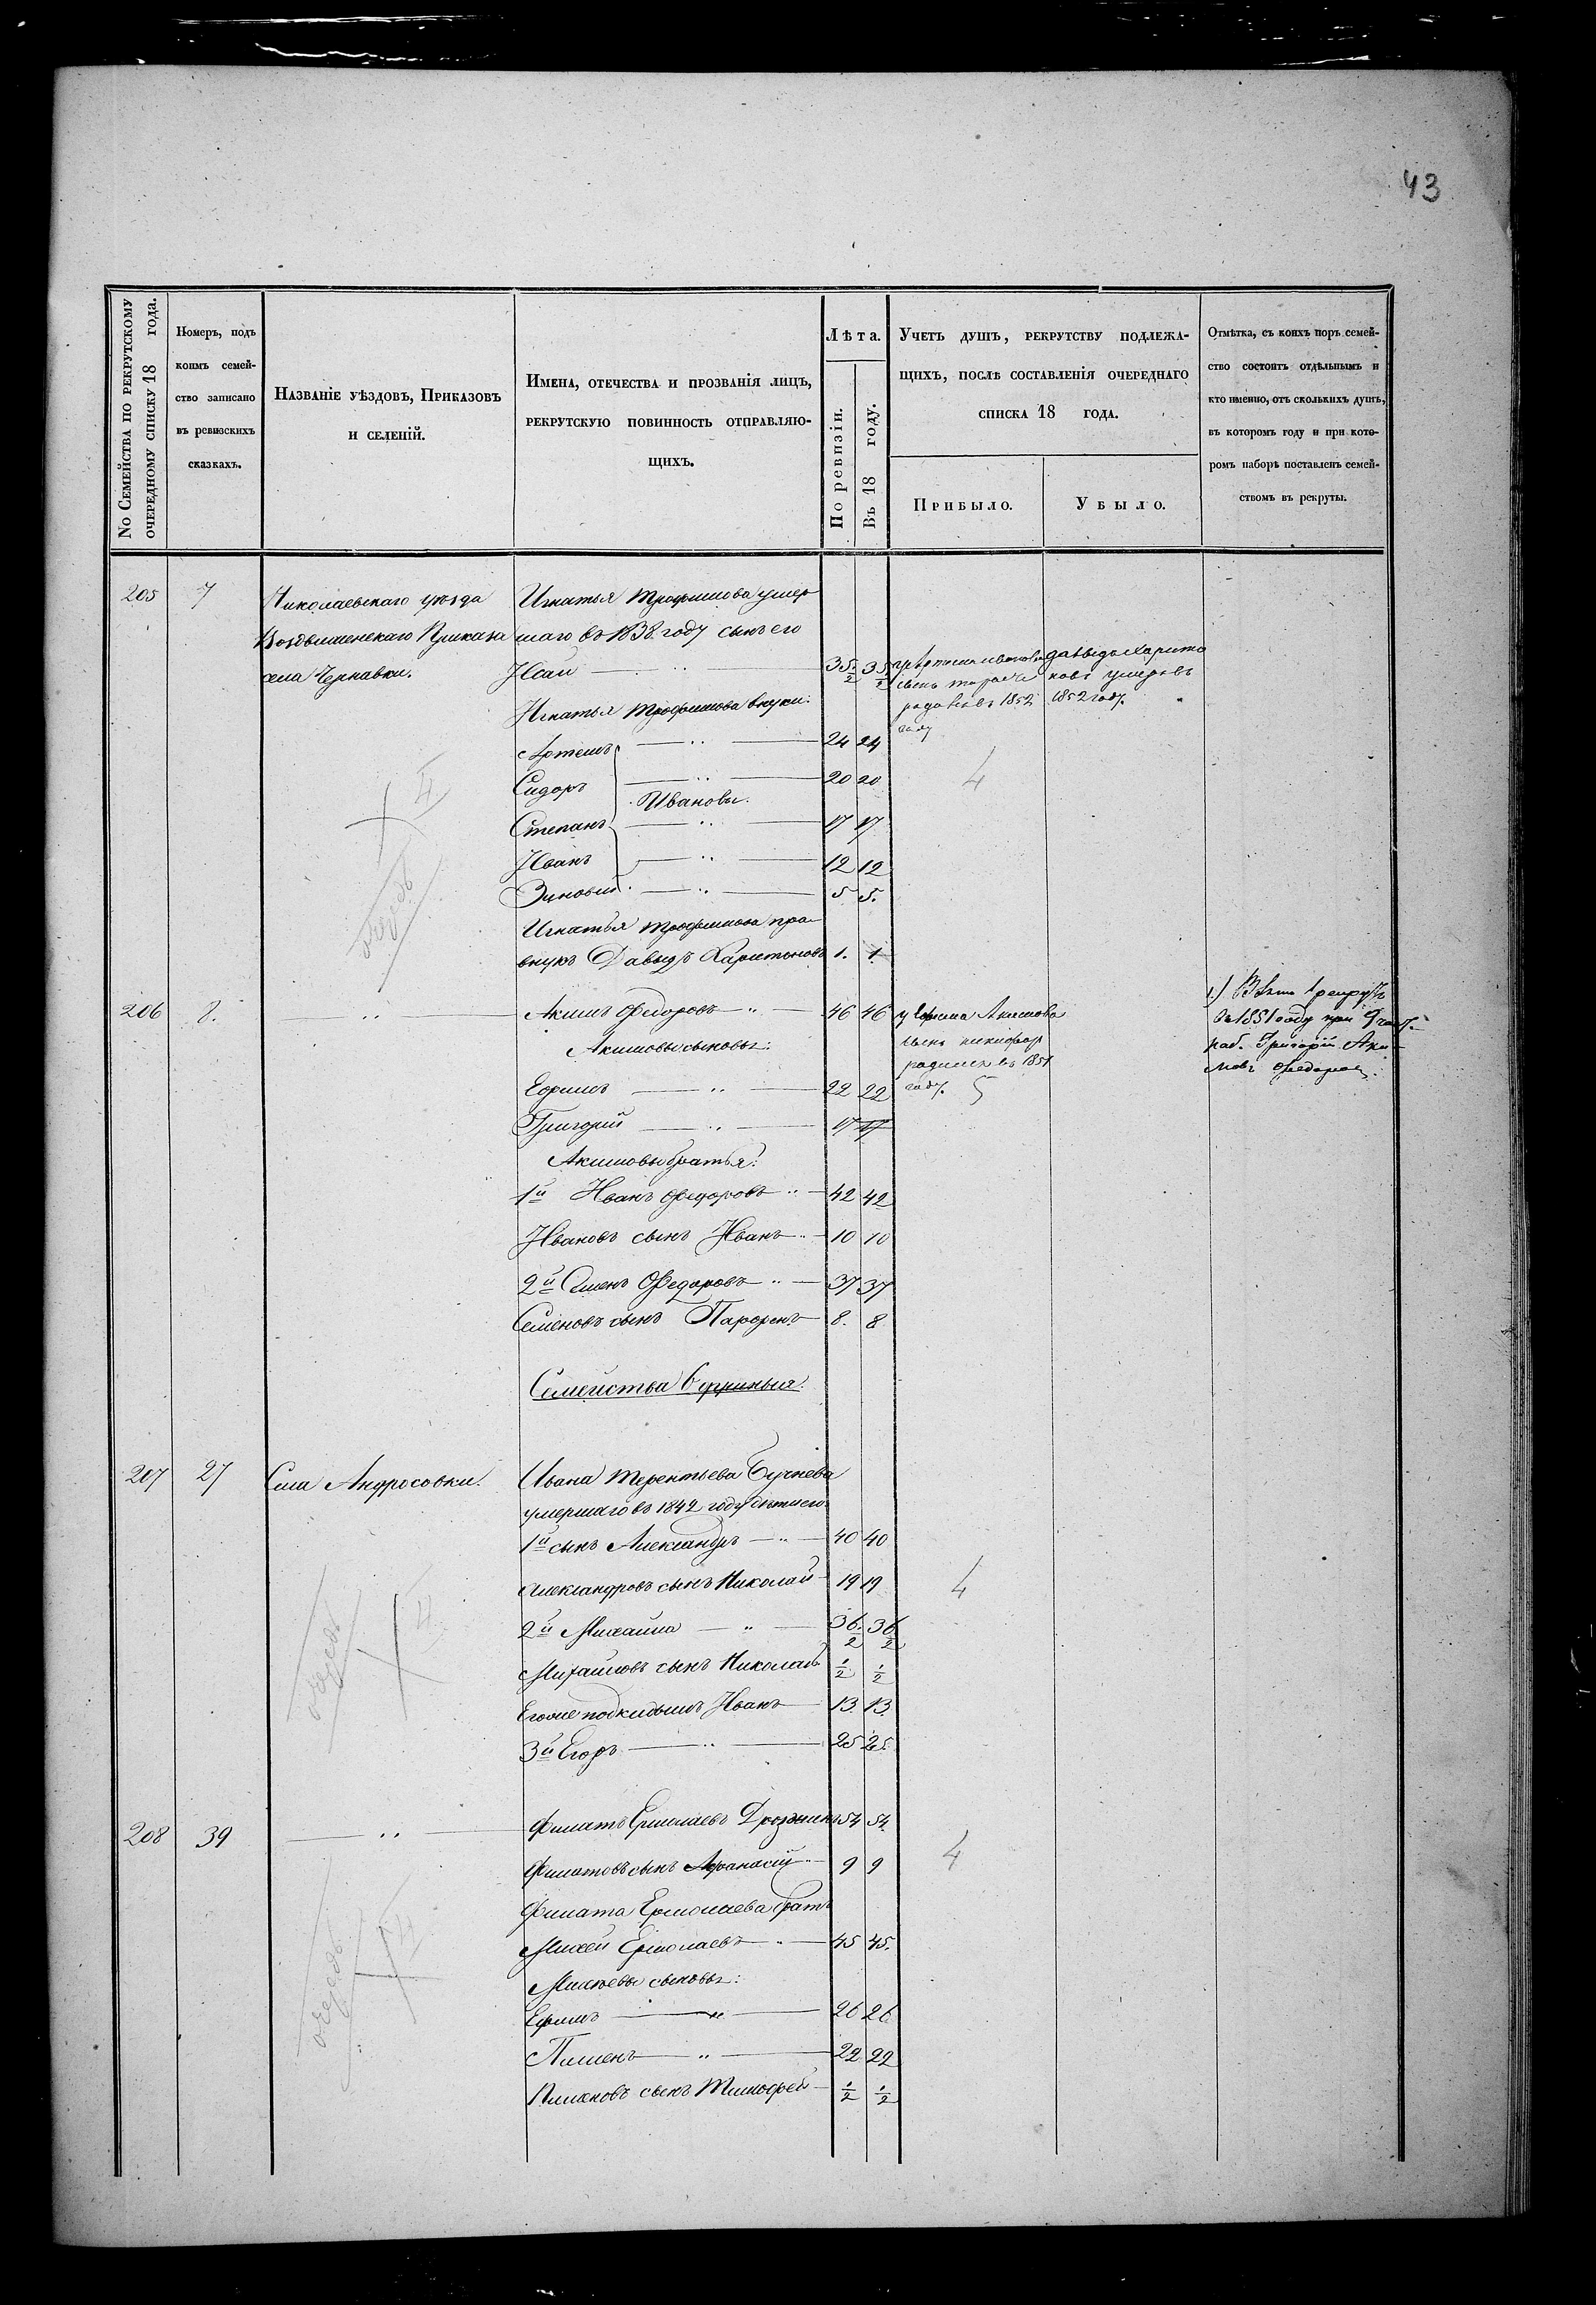 43
No Семейства по рекрутскому
очередному списку 18 года.
Номеръ, подъ
коимъ семей-
ство записано
въ ревизскихъ
сказкахъ.
Названіе уѣздовъ, Приказовъ
и селеній.
Имена, отечества и прозванія лицъ,
рекрутскую повинность отправляю-
щихъ.
Лѣта.
По ревизіи.
Въ 18 году.
Учетъ душъ, рекрутству подлежа-
щихъ, послѣ составленія очереднаго
списка 18 года.
Прибыло.
Убыло.
Отмѣтка, съ коихъ поръ семей-
ство состоитъ отдѣльнымъ и
кто именно, отъ сколькихъ душъ,
въ которомъ году и при кото-
ромъ наборѣ поставленъ семей-
ствомъ въ рекруты.
205 7 Николаевскаго уѣзда Игнатья Трофимова умер
Воздвиженскаго Приказа шаго въ 1838 году сынъ его
села Чернавки. Исай 35 1/2 35 1/2
у Артема Иванова
сынъ Тарасъ
родился въ 1852
году
Давыдъ Харито
новъ умеръ въ
1852 году.
Игнатья Трофимова внуки:
Артемъ 24 24
Сидоръ 20 20 4
Ивановы.
Степанъ 17 17
Иванъ 12 12
Зиновий 5 5.
очередь
Игнатья Трофимова пра-
внукъ Давыдъ Харитоновъ 1. 1
206 8. Акимъ Федоровъ 46 46
у Ефима Акимова
сынъ Никифор
родился въ 1851
году. 5
1.) Взятъ въ рекруты
въ 1851 году при 9 част.
наб. Григорій Аки-
мовъ Федоров.
Акимовы сыновья:
Ефимъ 22 22
Григорий 17 17
Акимовы братья:
1й Иванъ Федоровъ 42 42
Ивановъ сынъ Иванъ 10 10
2й Семенъ Федоровъ 37 37
Семеновъ сынъ Парфенъ 8. 8
Семейства 6 душныя.
207 27 Села Андросовки. Ивана Терентьева Бучнева
умершаго въ 1842 году дѣти его
1й сынъ Александръ 40 40
Александровъ сынъ Николай 19 19 4
2й Михайла 36 1/2 36 1/2
Михайловъ сынъ Николай 1/2 1/2
Егоже подкидышъ Иванъ 13. 13.
3й Егоръ 25 25
очередь
208 39 Филатъ Ермолаевъ 54 54.
Филатовъ сынъ Афанасій 9 9 4
Филата Ермолаева братъ
Михей Ермолаевъ 45 45.
Михеевы сыновья:
Ефимъ 26 26
Пименъ 22 22
Пименовъ сынъ Тимофей 1/2 1/2
очередь